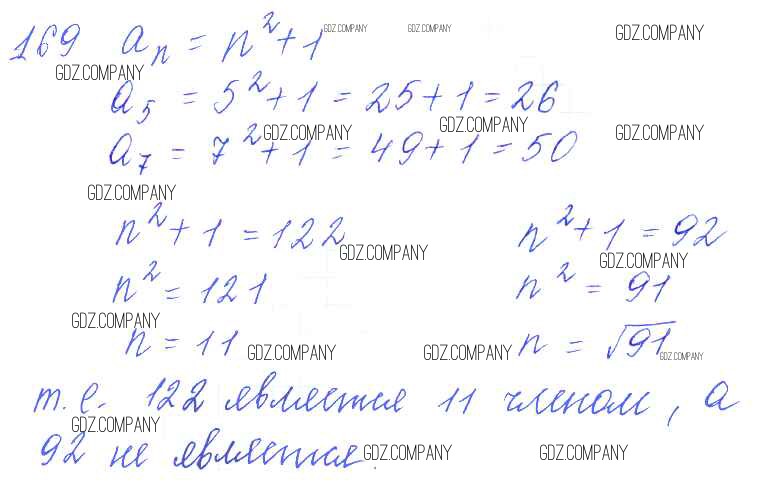 169 aₙ = n² + 1 GDZ.COMPANY GDZ.COMPANY GDZ.COMPANY
GDZ.COMPANY
a₅ = 5² + 1 = 25 + 1 = 26
GDZ.COMPANY GDZ.COMPANY GDZ.COMPANY
a₇ = 7² + 1 = 49 + 1 = 50
GDZ.COMPANY
n² + 1 = 122 n² + 1 = 92
GDZ.COMPANY GDZ.COMPANY
n² = 121 n² = 91
GDZ.COMPANY
n = 11 n = √91
GDZ.COMPANY GDZ.COMPANY GDZ.COMPANY
т.е. 122 является 11 членом, а
GDZ.COMPANY
92 не является.
GDZ.COMPANY GDZ.COMPANY